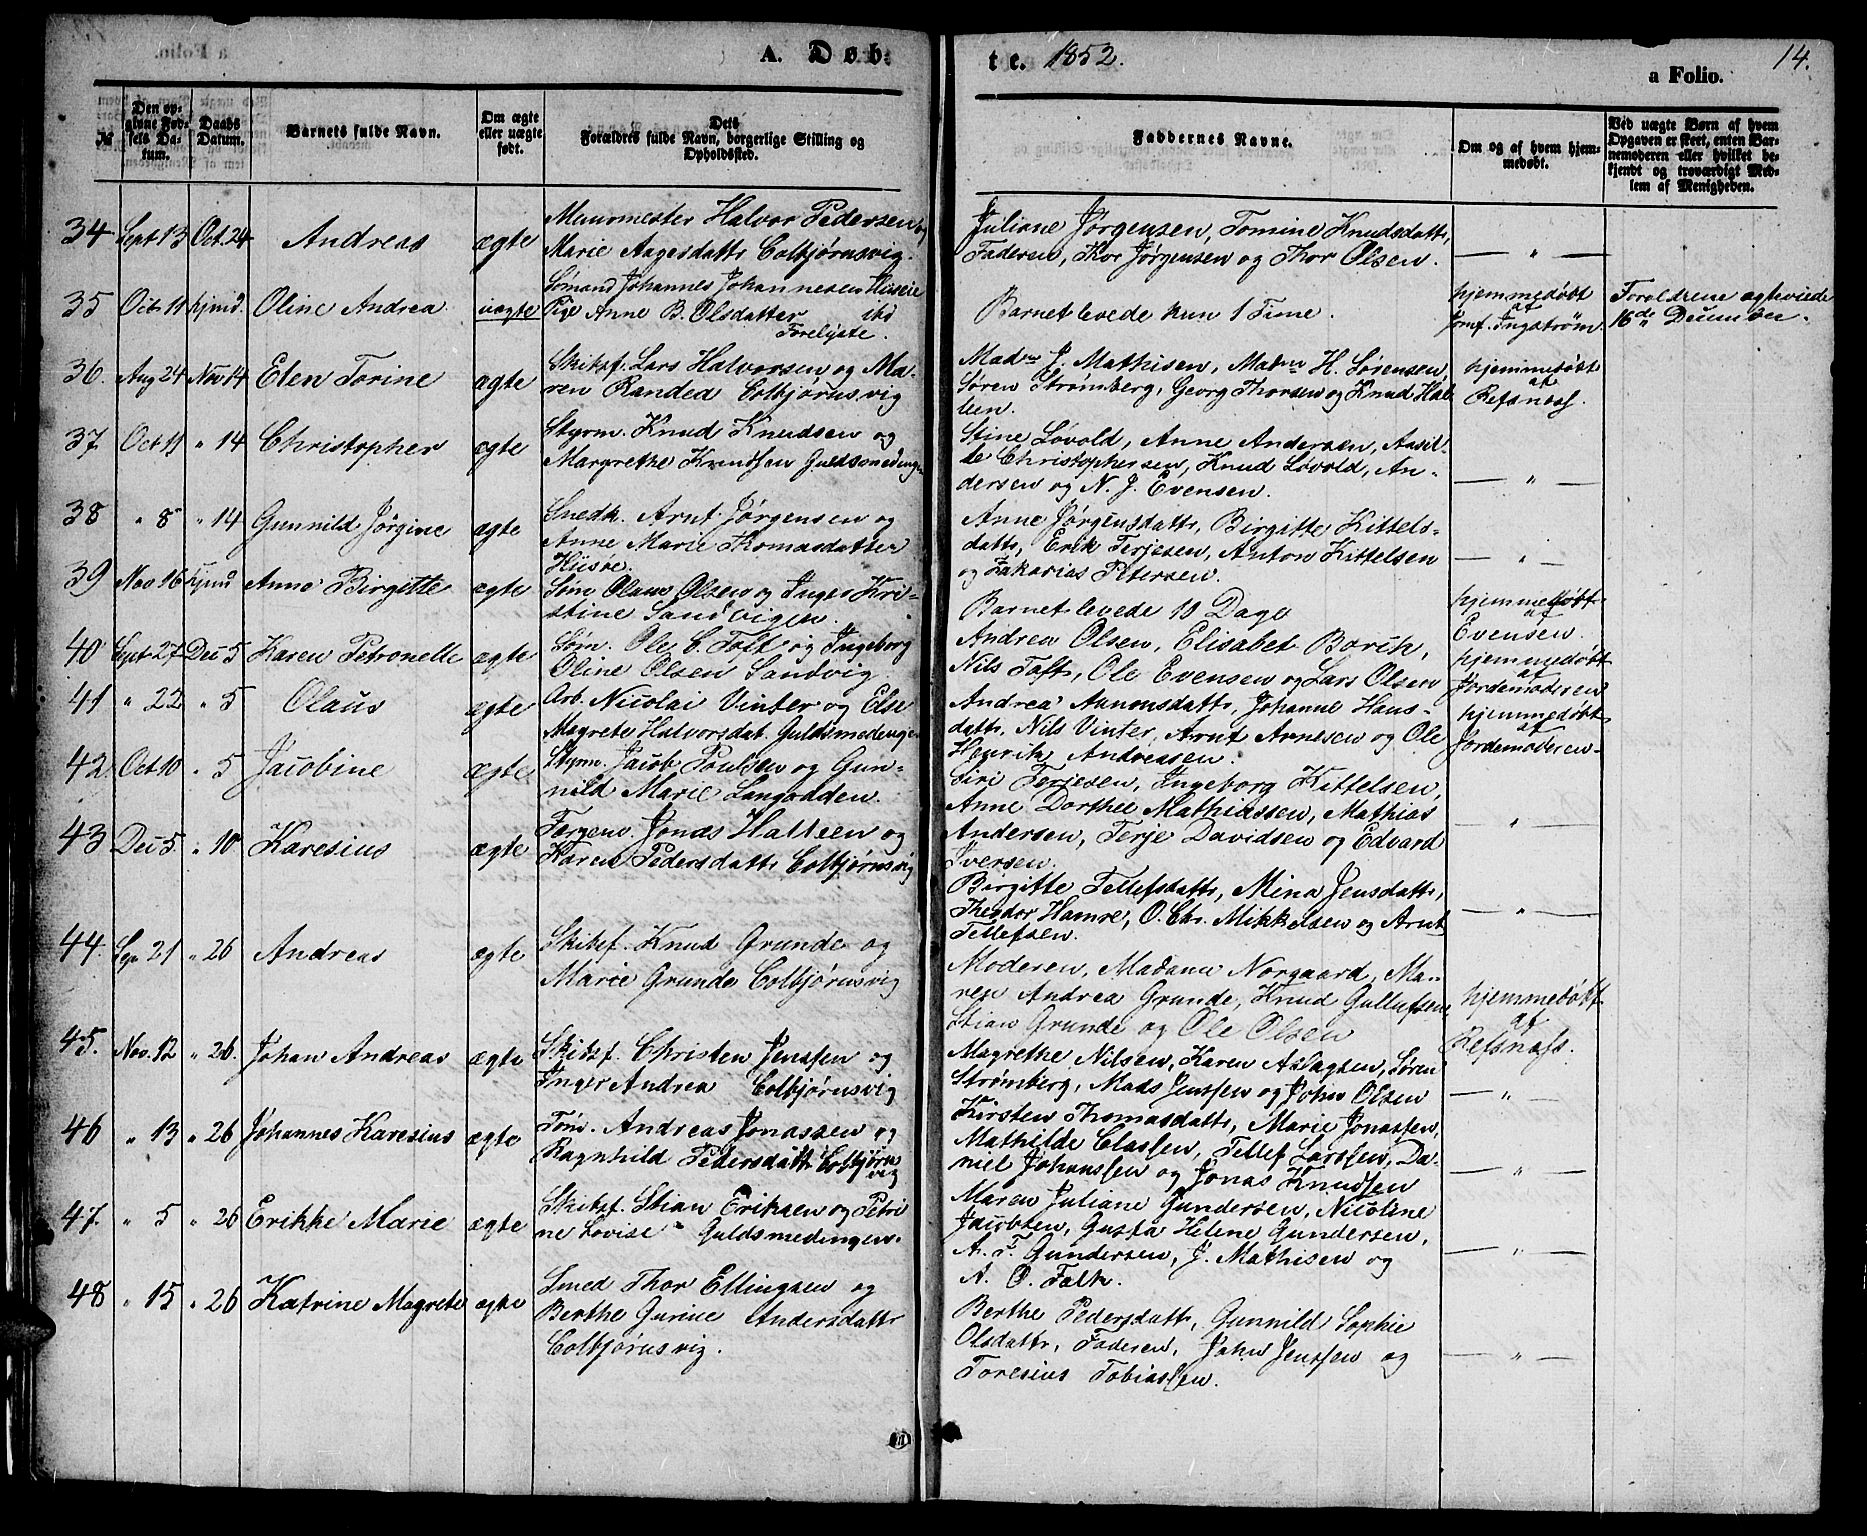 A. Døb-
te. 1852.
a Folio.
14.
№
Den op-
givne Fød-
sels Da-
tum.
Daabs
Datum.
Barnets fulde Navn.
Om ægte
eller uægte
født.
Dets
Forældres fulde Navn, borgerlige Stilling og
Opholdssted.
Faddernes Navne.
Om og af hvem hjem-
medøbt.
Ved uægte Børn af hvem
Opgaven er skeet, enten Bar-
nemoderen eller hvilket be-
kjendt og troværdigt Med-
lem af Menigheden.
34 Sept 13 Oct. 24 Andreas ægte
Muurmester Halvor Pedersen og
Marie Aagesdattr Colbjørnsvig.
Juliane Jørgensen, Tomine Knudsdattr,
Faderen, Thor Jørgensen og Thor Olsen.
— " —
35 Octr 11 hjmd. Oline Andrea uægte
Sømand Johannes Johannesen Huseie
Pige Anne B. Olsdatter ibd
Forelyste.
Barnet levede kun 1 Time.
hjemmedøbt
af
Jomf. Ingstrøm.
Foreldrene egteviede
16de December.
36. Aug 24 Nov 14 Elen Torine ægte
Skibsf. Lars Halvorsen og Ma-
ren Randea Colbjørnsvig
Madme J. Mathisen, Madme H. Sørensen,
Søren Strømberg, Georg Thorsen og Knud Hal-
len.
hjemmedøbt
af
Refsnæs.
37. Oct 11 " 14 Christopher ægte
Styrm. Knud Knudsen og
Margrethe Knudsen Guldsmedengen
Stine Løvold, Anne Andersen, Aasil-
de Christophersen, Knud Løvold, An-
dersen og N. J. Evensen.
— " —
38 " 8 " 14 Gunnild Jørgine ægte
Snedk. Arnt Jørgensen og
Anne Marie Thomasdatter
Huseie.
Anne Jørgensdattr, Birgitte Kittels-
dattr, Erik Terjesen, Anton Kittelsen
og Zakarias Petersen.
— " —
39 Nov 16 hjmd Anne Birgitte ægte
Søm Olaus Olsen og Inger Kri-
stine Sandvigen.
Barnet levede 10 Dage
hjemmedøbt
af
Evensen.
40 Sept 27 Dec 5 Karen Petronelle ægte
Søm. Ole C. Toft og Ingeborg
Oline Olsen Sandvig.
Andrea Olsen, Elisabet Borik,
Nils Toft, Ole Evensen og Lars Olsen
hjemmedøbt
af
Jordemoderen
41 " 22 " 5 Olaus ægte
Arb. Nicolai Vinter og Else
Magrete Halvorsdat. Guldsmedenge.
Andrea Aanonsdattr, Johanne Hans-
dattr, Nils Vinter, Arnt Arnesen og Ole
Henrik Andreasen.
hjemmedøbt
af
Jordemoderen
42 Oct 10 " 5 Jacobine ægte
Styrm. Jacob Poulsen og Gun-
nild Marie Langodden.
Siri Terjesen, Ingeborg Kittelsen,
Anne Dorthee Mathiassen, Mathias
Andersen, Terje Davidsen og Edvard
Iversen.
— " —
43 Dec 5 " 10 Karesius ægte
Færgem. Jonas Halleen og
Karen Pedersdattr Colbjørnsvig
Birgitte Tellefsdattr, Mina Jensdattr,
Theodor Hamre, O. Chr. Mikkelsen og Arnt
Tellefsen.
— " —
44. Sep 21 " 26 Andreas ægte
Skibsf. Knud Grunde og
Marie Grunde Colbjørnsvig
Moderen, Madame Norgaard, Ma-
ren Andrea Grunde, Knud Gullufsen,
Stian Grunde og Ole Olsen
hjemmedøbt
af
Refsnæs.
45. Nov. 12 " 26. Johan Andreas ægte
Skibsf. Christen Jenssen og
Inger Andrea Colbjørnsvig
Magrethe Nilsen, Karen Aslagsen, Søren
Strømberg, Mads Jenssen og Johan Olsen
— " —
46 " 13 " 26 Johannes Karesius ægte
Tøm. Andreas Jonassen og
Ragnhild Pedersdattr Colbjørn
vig
Kirsten Thomasdattr, Marie Jonassen,
Mathilde Classen, Tellef Larssen, Da-
niel Johanssen og Jonas Knudsen
— " —
47. " 5 " 26 Erikke Marie ægte
Skibsf. Stian Eriksen og Petri
ne Lovise Guldsmedengen.
Maren Juliane Gundersen, Nicoline
Jacobsen, Gusta Helene Gundersen,
A. T. Gundersen, J. Mathisen og
A. O. Falk.
— " —
48 " 15 " 26 Katrine Magrete ægte
Smed Thor Ellingsen og
Berthe Gurine Andersdattr
Colbjørnsvig.
Berthe Pedersdattr, Gunnild Sophie
Olsdattr, Faderen, John Jenssen og
Toresius Tobiassen.
— " —